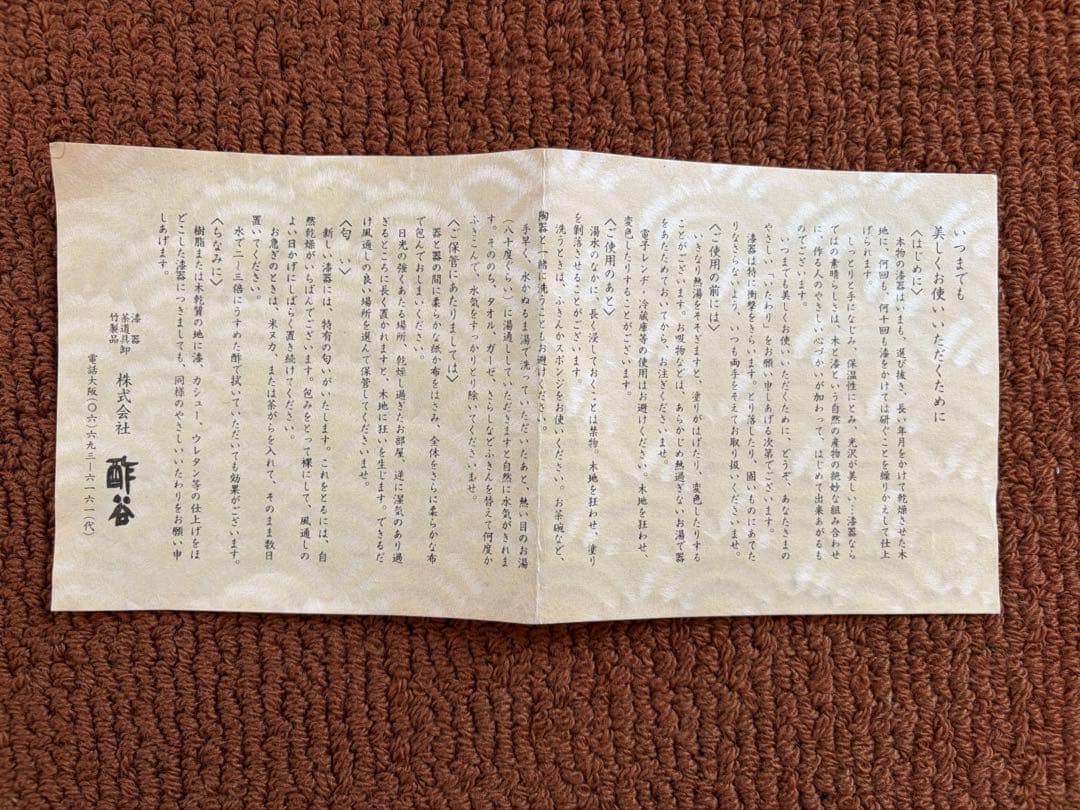 いつまでも
美しくお使いいただくために
〈はじめに〉
本物の漆器はいまも、選び抜き、長い年月をかけて乾燥させた木
地に、何回も、何十回も漆をかけては研ぐことを繰りかえして仕上
げられます。
しっとりと手になじみ、保温性にとみ、光沢が美しい…漆器なら
ではの素晴らしさは、木と漆という自然の産物の絶妙な組み合わせ
に、作る人のやさしい心づかいが加わって、はじめて出来あがるも
のでございます。
いつまでも美しくお使いいただくために、どうぞ、あなたさまの
やさしい、「いたわり」をお願い申しあげる次第でございます。
漆器は特に衝撃をきらいます。とり落したり、固いものにあてた
りなさらないよう、いつも両手をそえてお取り扱いくださいませ。
〈ご使用の前には〉
いきなり熱湯をそそぎますと、塗りがはげたり、変色したりする
ことがございます。お吸物などは、あらかじめ熱過ぎないお湯で器
をあたためておいてから、お注ぎくださいませ。
電子レンヂ、冷蔵庫等の使用はお避けください。木地を狂わせ、
変色したりすることがございます。
〈ご使用のあと〉
湯水のなかに、長く浸しておくことは禁物。木地を狂わせ、塗り
を剥落させることがございます。
洗うときは、ふきんかスポンジをお使いください。お茶碗など、
陶器と一緒に洗うこともお避けください。
手早く、水かぬるま湯で洗っていただいたあと、熱い目のお湯
(八十度ぐらい)に湯通していただきますと自然に水気がきれま
す。そののち、タオル、ガーゼ、さらしなどふきんを替えて何度か
ふきこんで、水気をすっかりとり除いてくださいませ。
〈ご保管にあたりましては〉
器と器の間に柔らかな紙か布をはさみ、全体をさらに柔らかな布
で包んでおしまいください。
日光の強くあたる場所、乾燥し過ぎたお部屋、逆に湿気のあり過
ぎるところに長く置かれますと、木地に狂いを生じます。できるだ
け風通しの良い場所を選んで保管してくださいませ。
〈匂い〉
新しい漆器には、特有の匂いがいたします。これをとるには、自
然乾燥がいちばんでございます。包みをとって裸にして、風通しの
よい日かげにしばらく置き続けてください。
お急ぎのときは、米ヌカ、または茶がらを入れて、そのまま数日
置いてください。
水で二—三倍にうすめた酢で拭いていただいても効果がございます。
〈ちなみに〉
樹脂または木乾質の地に漆、カシュー、ウレタン等の仕上げをほ
どこした漆器につきましても、同様のやさしいいたわりをお願い申
しあげます。
漆器
茶道具卸
竹製品
株式会社 酢谷
電話大阪(〇六)六九三—六一六一(代)